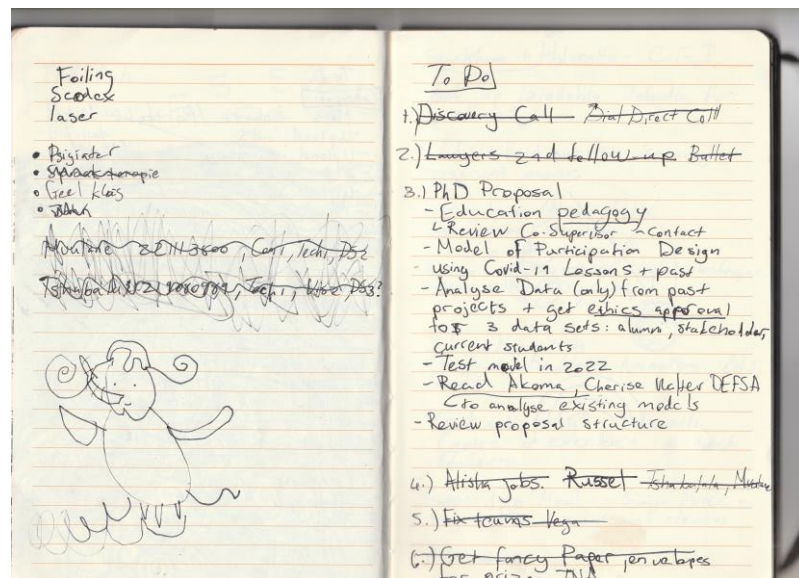 Foiling
Scodex
laser
• Psigiater
• Spraakterapie
• Geel klas
To Do
1.) Discovery Call Dial Direct Call
2.) Lawyers and follow-up Butlet
3.) PhD Proposal
- Education pedagogy
Review Co-Supervisor Contact
- Model of Participation Design
using Covid-19 Lessons + past
- Analyse Data (only) from past
projects + get ethics approval
3 data sets: alumni, stakeholder,
current students
- Test model in 2022
- Read Akoma, Cherise DEFSA
to analyse existing models
- Review proposal structure
4.) Alisha jobs. Russel Tshabalala,
5.) Fix teams Vega
6.) Get fancy Paper, envelopes